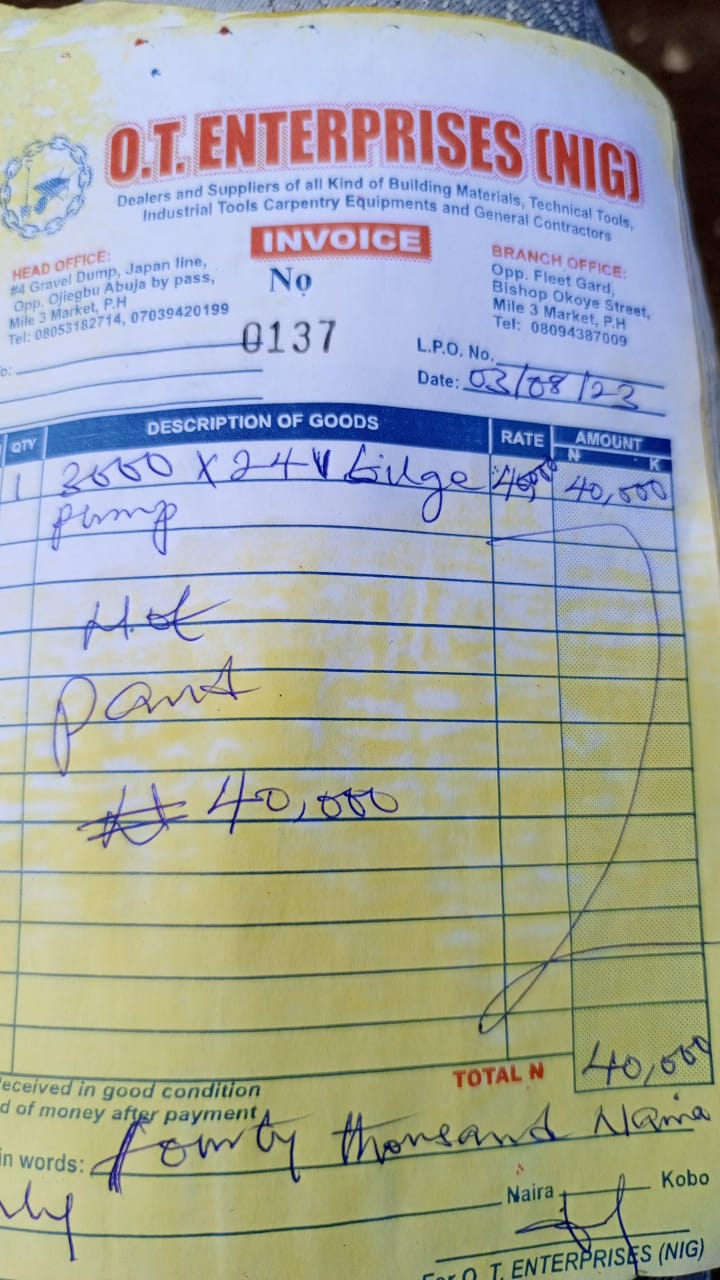 O.T. ENTERPRISES (NIG)
Dealers and Suppliers of all Kind of Building Materials, Technical Tools,
Industrial Tools Carpentry Equipments and General Contractors
INVOICE
HEAD OFFICE:
#4 Gravel Dump, Japan line,
Opp. Ojiegbu Abuja by pass,
Mile 3 Market, P.H
Tel: 08053182714, 07039420199
No
0137
BRANCH OFFICE:
Opp. Fleet Gard,
Bishop Okoye Street,
Mile 3 Market, P.H
Tel: 08094387009
L.P.O. No.
Date: 03/08/23
QTY DESCRIPTION OF GOODS RATE AMOUNT
N K
1 3000 X 24V Bilge 40,000 40,000
pump
₦ 40,000
TOTAL N 40,000
eceived in good condition
d of money after payment
in words: fourty thousand Naira
Naira Kobo
For O. T. ENTERPRISES (NIG)